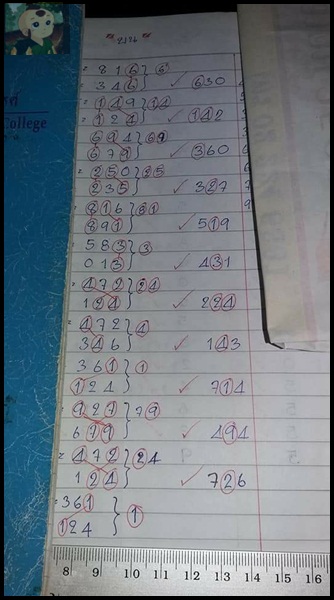 "บน"
= 8 1 6 } 6
= 3 4 6 ✓ 630
= 1 4 9 } 14
= 1 2 4 ✓ 142
6 9 4 } 69
6 7 9 ✓ 360
= 2 5 0 } 25
2 3 5 ✓ 327
= 8 1 6 } 81
8 9 1 ✓ 519
5 8 3 } 3
0 1 3 ✓ 431
= 4 7 2 } 24
1 2 4 ✓ 224
= 4 7 2 } 4
3 4 6 ✓ 143
3 6 1 } 1
1 2 4 ✓ 714
= 9 2 7 } 79
6 7 9 ✓ 494
= 4 7 2 } 24
1 2 4 ✓ 726
= 3 6 1 } 1
1 2 4
College
8 9 10 11 12 13 14 15 16